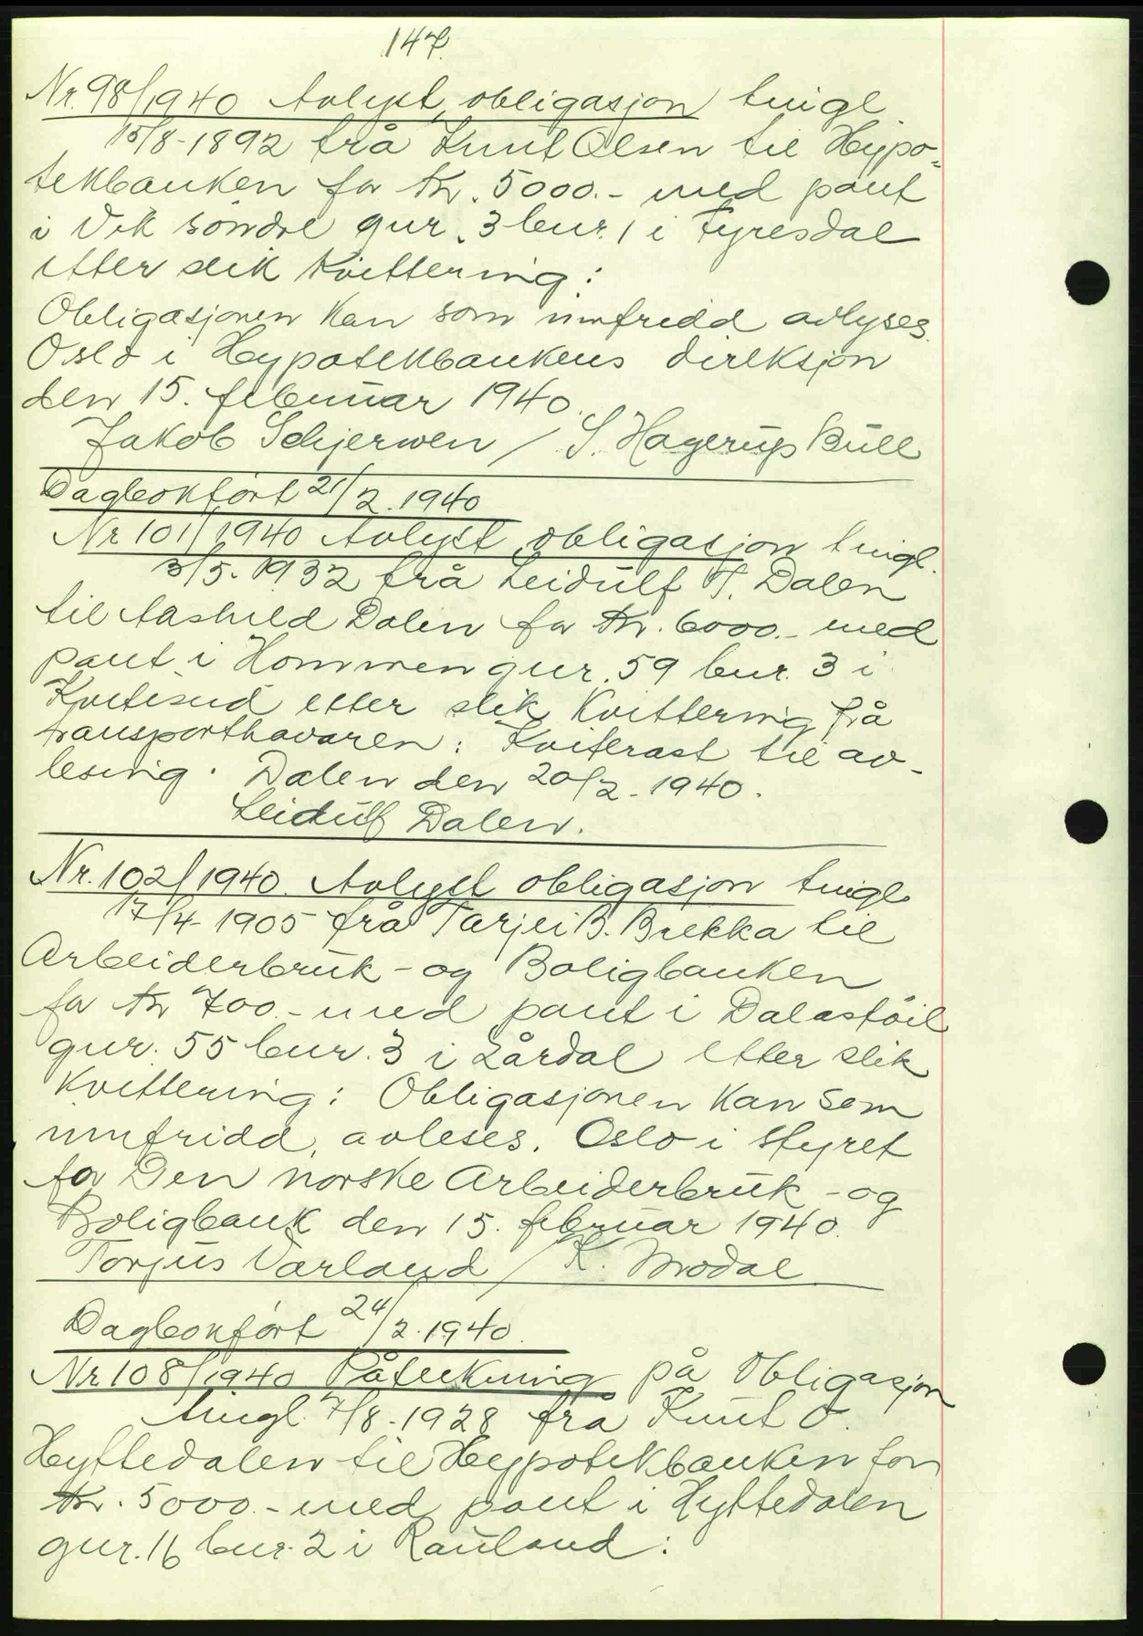 147.
Nr. 98/1940 Avlyst obligasjon tingl
15/8-1892 frå Knut Olsen til Hypo-
tekbanken for kr. 5000.- med pant
i Vik söndre gnr. 3 bnr. 1 i Fyresdal
etter slik kvittering:
Obligasjonen kan som innfridd avlyses.
Oslo i Hypotekbankens direksjon
den 15. februar 1940.
Jakob Schjerwen / S. Hagerup Bull
Dagbokfört 21/2.1940
Nr 101/1940 Avlyst obligasjon tingl.
3/5-1932 frå Leidulf T. Dalen
til Aashild Dalen for kr. 6000.- med
pant i Hommen gnr. 59 bnr. 3 i
Kviteseid etter slik kvittering frå
transporthavaren: Kviterast til av-
lesing. Dalen den 20/2-1940.
Leidulf Dalen.
Nr. 102/1940. Avlyst obligasjon tingl.
17/4-1905 frå Tarjei B. Brekka til
Arbeiderbruk- og Boligbanken
for kr 700.- med pant i Dalastöil
gnr. 55 bnr. 3 i Lårdal etter slik
kvittering: Obligasjonen kan som
innfridd, avleses. Oslo i styret
for Den norske Arbeiderbruk- og
Boligbank den 15. februar 1940.
Torjus Værland / K. Modal
Dagbokfört 24/2.1940.
Nr 108/1940 Påteikning på Obligasjon
tingl. 7/8-1928 frå Knut O.
Hyttedalen til Hypotekbanken for
kr. 5000.- med pant i Hyttedalen
gnr. 16 bnr. 2 i Rauland: